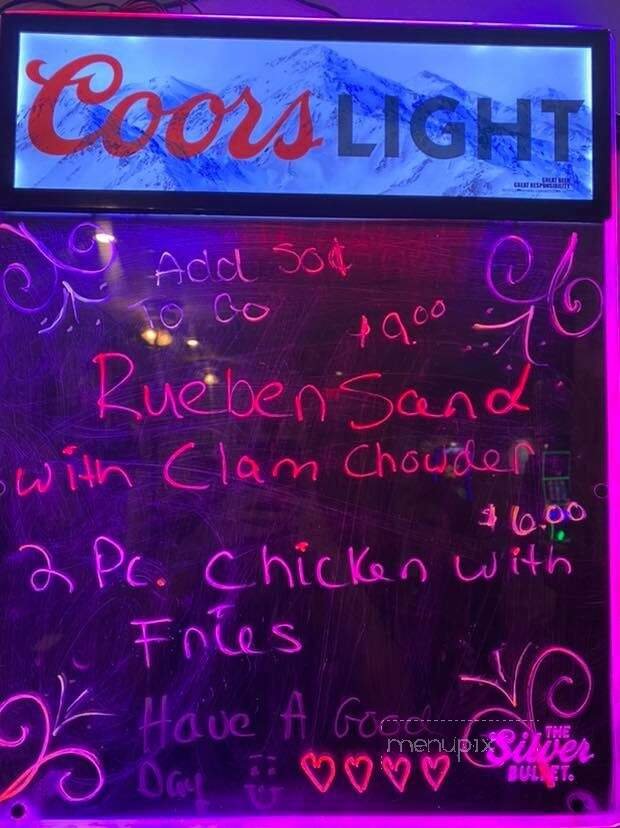 Coors LIGHT
GREAT BEER
GREAT RESPONSIBILITY
Add 50¢
To Go
$9.00
Rueben Sand
with Clam Chowder
$6.00
2 Pc. Chicken with
Fries
Have A Good
Day
menupix
THE
Silver
BULLET.